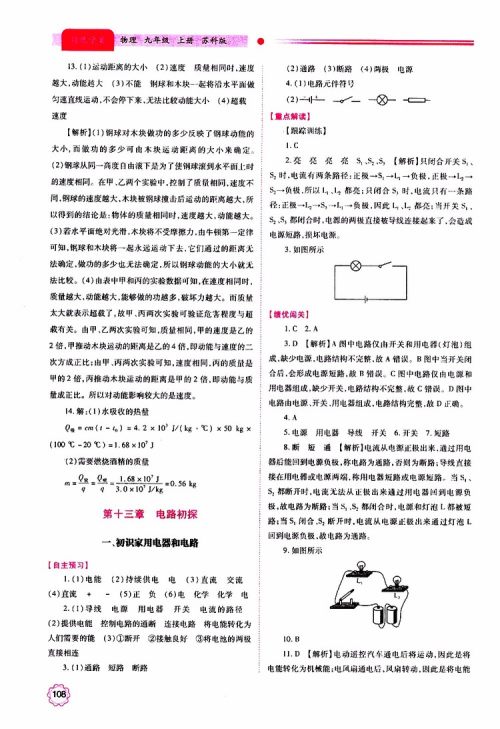 物理 九年级 上册 苏科版
13.(1)运动距离的大小 (2)速度 质量相同时,速度
越大,动能越大 (3)不能 钢球和木块一起将沿水平面做
匀速直线运动,不会停下来,无法比较动能大小 (4)超载
速度
【解析】(1)钢球对木块做功的多少反映了钢球动能的
大小,而做功的多少可由木块运动距离的大小来确定。
(2)钢球从同一高度自由滚下是为了使钢球滚到水平面上时
的速度相同。在甲、乙两个实验中,控制了质量相同,速度不
同,钢球的速度越大,木块被钢球撞击后运动的距离越大,所
以得到的结论是:物体的质量相同时,速度越大,动能越大。
(3)若水平面绝对光滑,木块将不受摩擦力,由牛顿第一定律
可知,钢球和木块将一起永远运动下去,它们通过的距离无
法确定,做功的多少也无法确定,所以钢球动能的大小就无
法比较。(4)由表中甲和丙的实验数据可知,在速度相同时,
质量越大,动能越大,能够做的功越多,破坏力越大。而质量
太大就表示超载了,故甲、丙两次实验可验证危害程度与超
载有关。由甲、乙两次实验可知,质量相同,甲的速度是乙的
2倍,甲推动木块运动的距离是乙的4倍,即动能与速度的二
次方成正比;由甲、丙两次实验可知,速度相同,丙的质量是
甲的2倍,丙推动木块运动的距离是甲的2倍,即动能与质
量成正比。所以对动能影响较大的是速度。
14.解:(1)水吸收的热量
Q吸=cm(t-t₀)=4.2×10³ J/(kg·℃)×50 kg×
(100 ℃-20 ℃)=1.68×10⁷ J
(2)需要燃烧酒精的质量
m=Q放/q=Q吸/q=1.68×10⁷ J/3.0×10⁷ J/kg=0.56 kg
第十三章 电路初探
一、初识家用电器和电路
【自主预习】
1.(1)电能 (2)持续供电 电 (3)直流 交流
(4)直流 + - (5)正 负 (6)电 化学 化学 电
2.(1)导线 电源 用电器 开关 电流的路径
(2)提供电能 控制电路的通断 连接电路 将电能转化为
人们需要的能 (3)①断开 ②接触良好 ③将电池的两极
直接相连
3.(1)通路 短路 断路
108
(2)通路 (3)断路 (4)两极 电源
4.(1)电路元件符号
(2)
【重点解读】
【跟踪训练】
1.C
2.亮 亮 亮 亮 S₁、S₂、S₃ 【解析】只闭合开关S₁、
S₂时,电流有两条路径:正极→S₁→L₁→负极,正极→L₂→
S₂→负极,所以L₁、L₂都亮;只闭合S₃时,电流只有一条路
径:正极→L₂→S₃→L₁→负极,因此L₁、L₂都亮;当开关S₁、
S₂、S₃都闭合时,电源的两极直接被导线连接起来了,会造成
电源短路,损坏电源。
3.如图所示
【绩优闯关】
1.C 2.A
3.D 【解析】A图中电路仅由开关和用电器(灯泡)组
成,缺少电源,电路结构不完整,故A错误。B图中当开关闭
合后,会形成电源短路,故B错误。C图中电路仅由电源和
用电器组成,缺少开关,电路结构不完整,故C错误。D图中
电路由电源、开关、用电器组成,电路结构完整,故D正确。
4.A
5.电源 用电器 导线 开关 6.开关 7.短路
8.断 短 通 【解析】电流从电源正极出来,通过用电
器后能回到电源负极,称电路为通路,否则为断路;导线直接
接在用电器或电源两端,称用电器短路或电源短路。当S₁、
S₂都断开时,电流无法从正极出来通过用电器回到电源负
极,故电路为断路;当S₁、S₂都闭合时,电源和灯泡L都被短
路;当S₁闭合、S₂断开时,电流从电源正极出来通过灯泡L
回到电源负极,故电路为通路。
9.如图所示
L₁
L₂
10.B
11.D 【解析】电动遥控汽车通电后将运动,因此是将
电能转化为机械能;电风扇通电后,风扇转动,因此是将电能